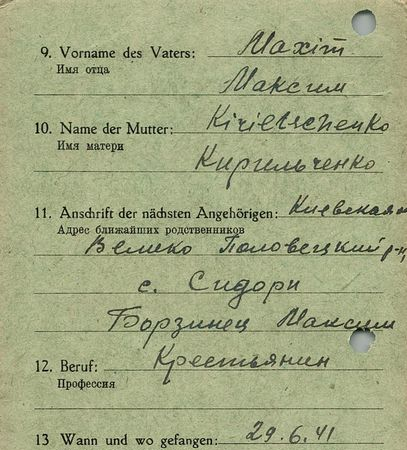 9. Vorname des Vaters: Maxim
Имя отца
Максим
10. Name der Mutter: Kirieltschenko
Имя матери
Кирильченко
11. Anschrift der nächsten Angehörigen: Киевская
Адрес ближайших родственников
Велико Половецкий р-н,
с. Сидори
Борзинец Максим
12. Beruf: Крестьянин
Профессия
13 Wann und wo gefangen: 29.6.41